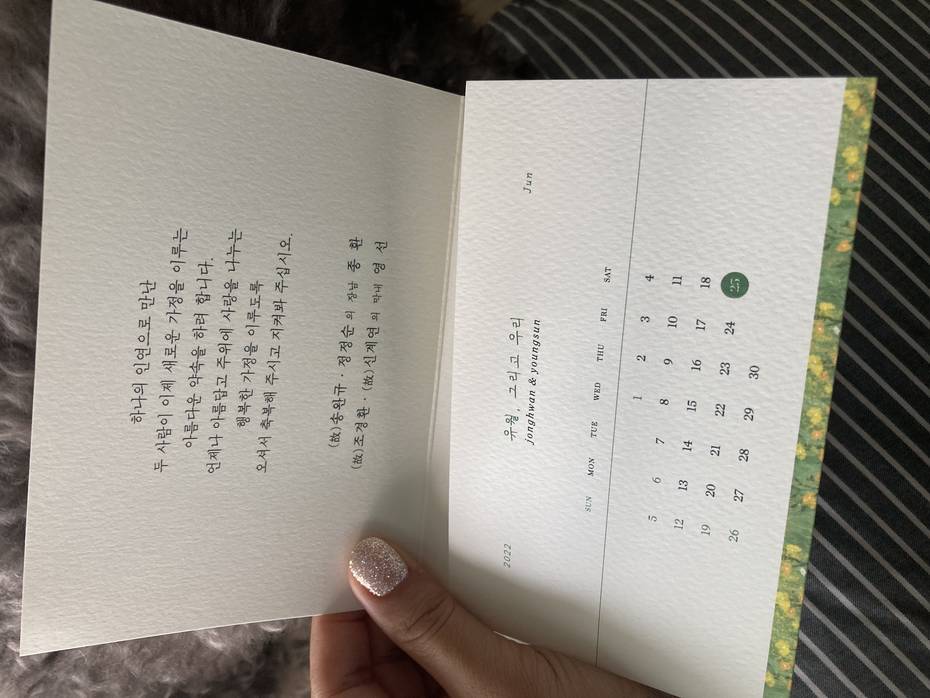 하나의 인연으로 만난
두 사람이 이제 새로운 가정을 이루는
아름다운 약속을 하려 합니다.
언제나 아름답고 주위에 사랑을 나누는
행복한 가정을 이루도록
오셔서 축복해 주시고 지켜봐 주십시오.
(故)송완규 · 정정순 의 장남 종 환
(故)조경환 · (故)신계연 의 막내 영 선
2022
유월, 그리고 우리
Jun
jonghwan & youngsun
SUN MON TUE WED THU FRI SAT
1 2 3 4
5 6 7 8 9 10 11
12 13 14 15 16 17 18
19 20 21 22 23 24 25
26 27 28 29 30